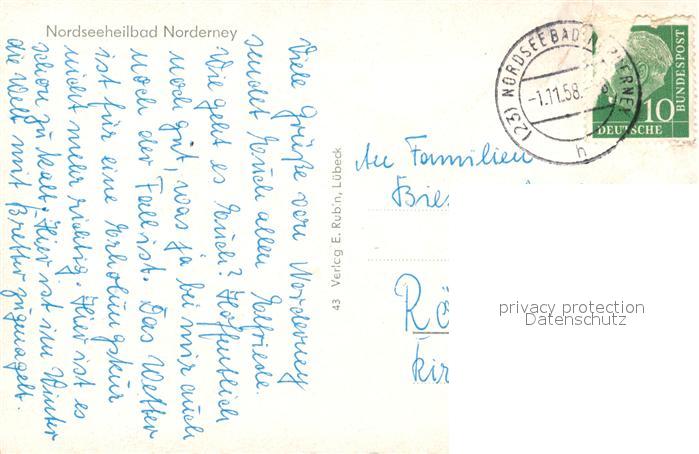 Nordseeheilbad Norderney
Viele Grüße von Norderney
sendet Euch allen Elfriede.
Wie geht es Euch? Hoffentlich
noch gut, was ja bei mir auch
noch der Fall ist. Das Wetter
ist für eine Erholungskur
nicht mehr richtig. Hier ist es
schon zu kalt. Hier ist im Winter
die Welt mit Bretter zugenagelt.
43 Verlag E. Rub'n, Lübeck
(23) NORDSEEBAD NORDERNEY
-1.11.58.
h
10
DEUTSCHE
BUNDESPOST
An Familien
privacy protection
Datenschutz